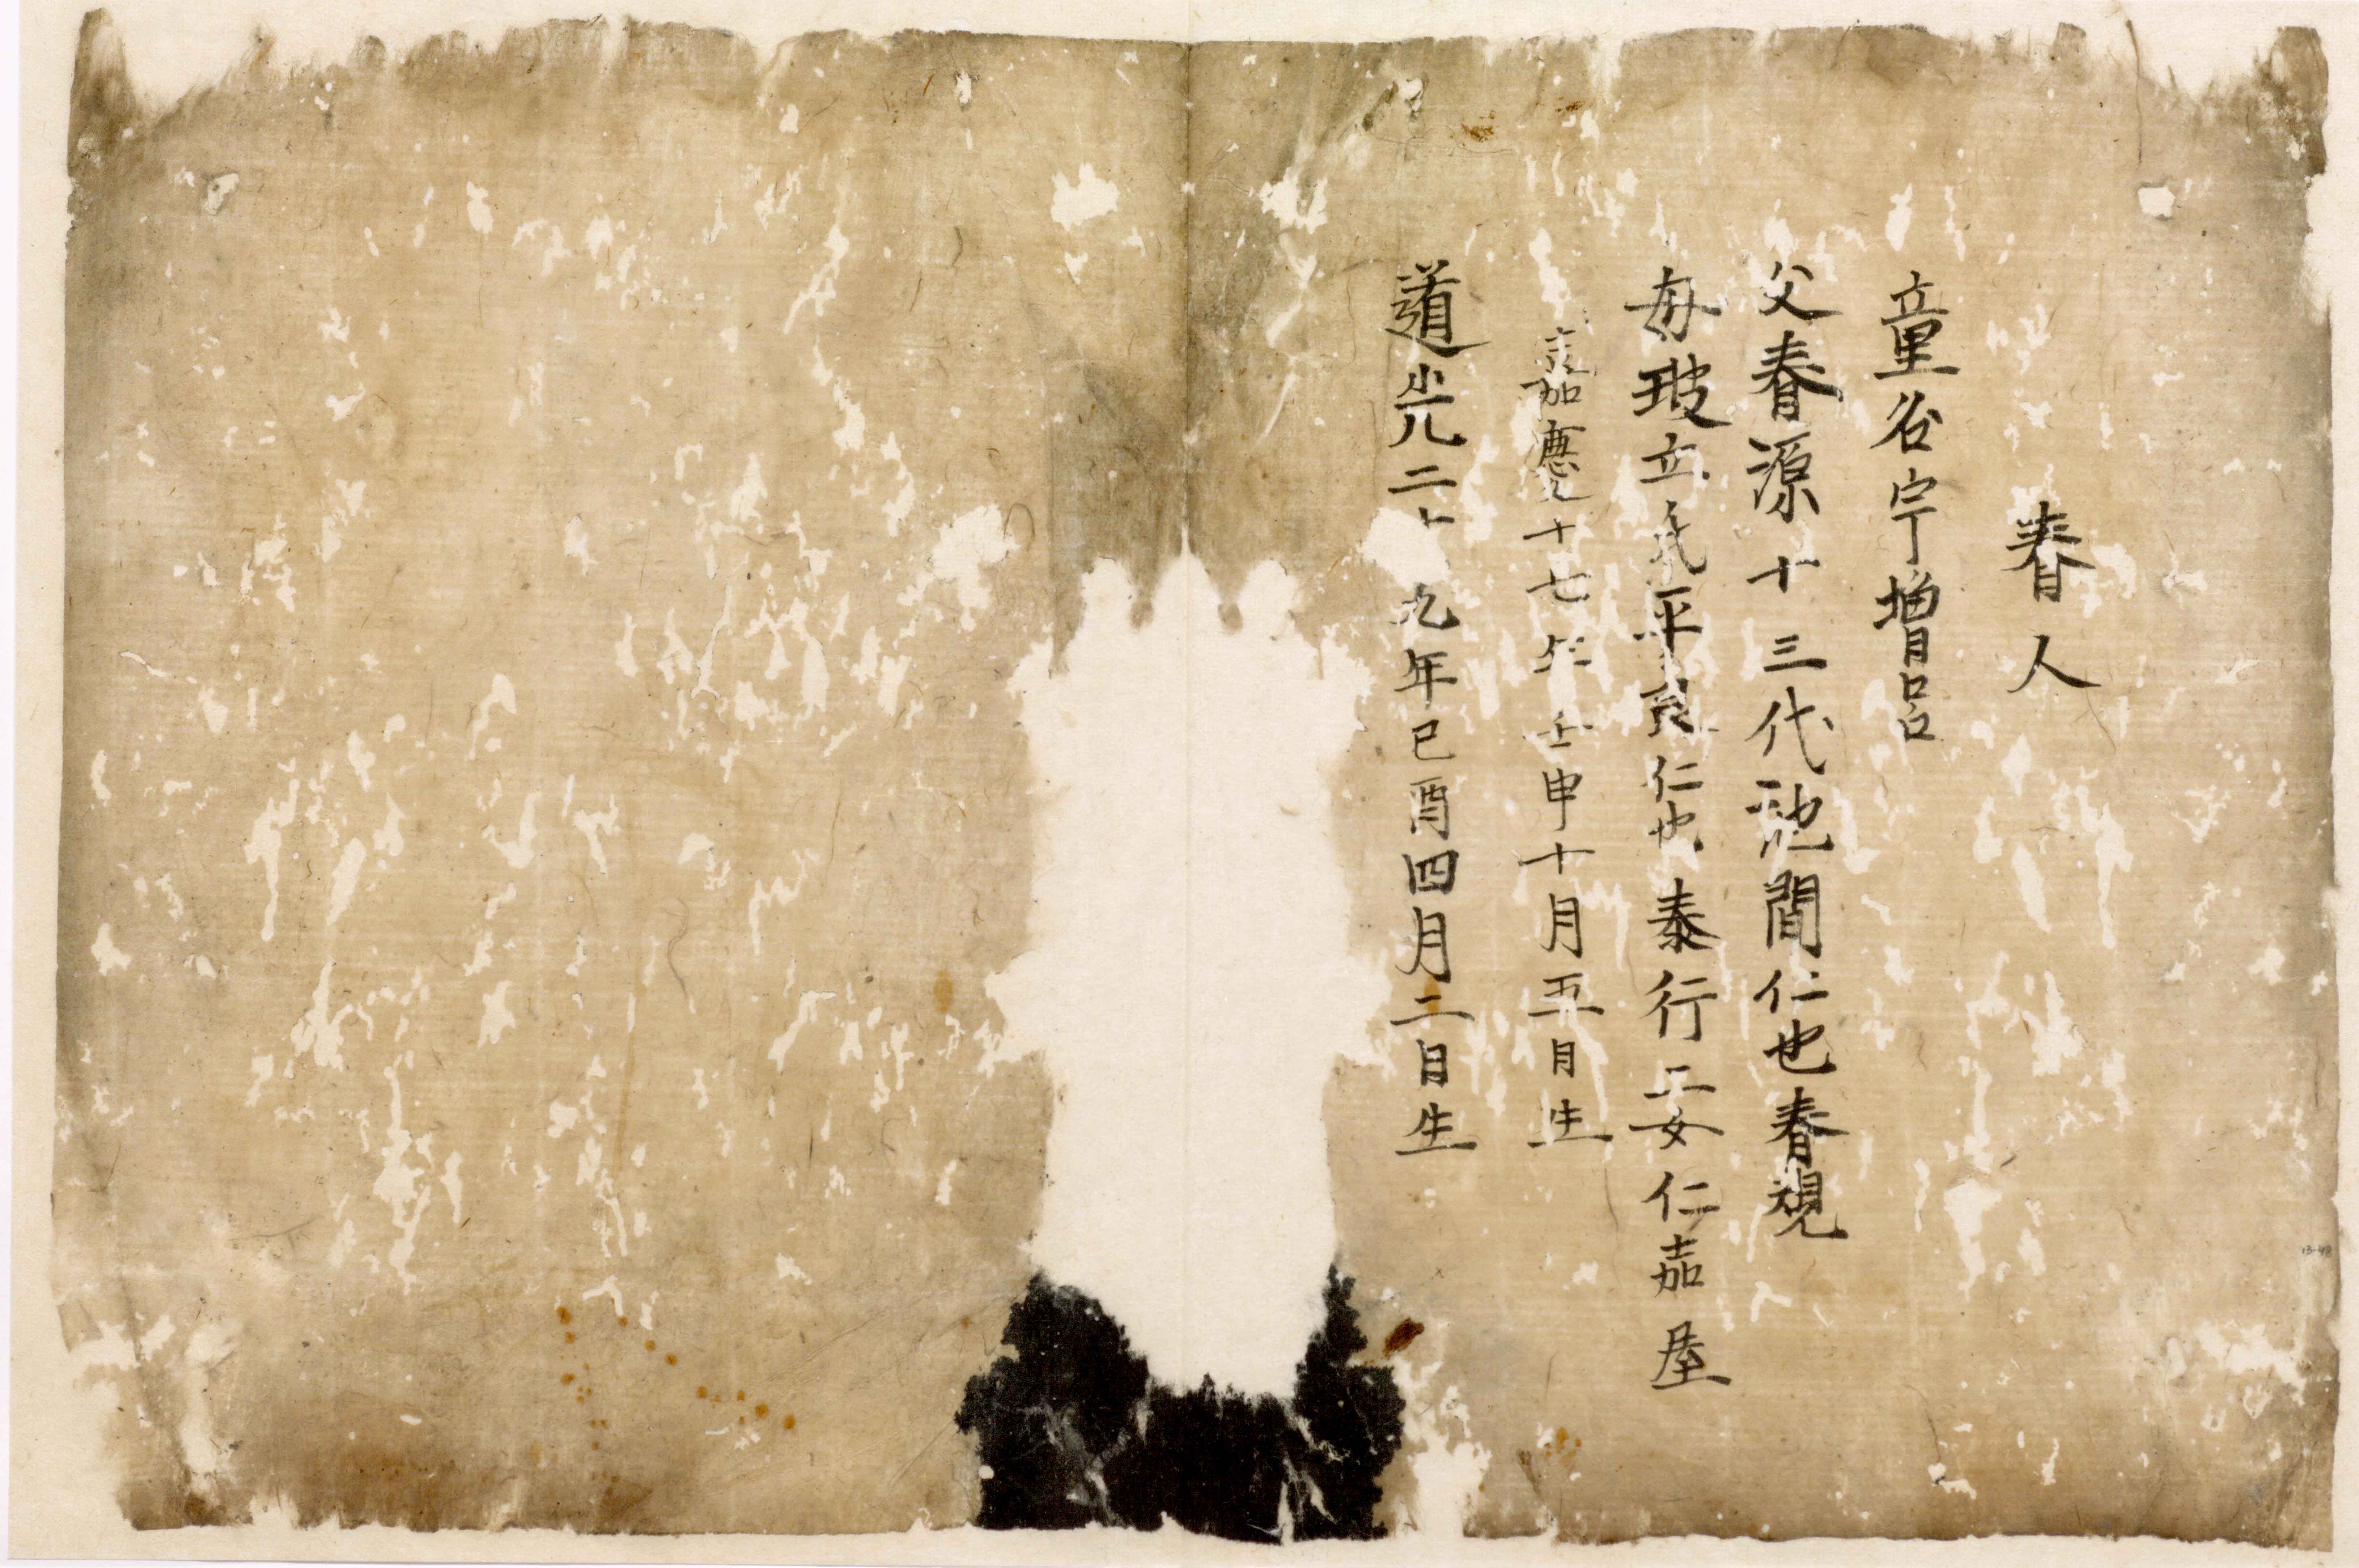 春人
童名宇増呂
父春源十三代池間仁也春視
母玻立氏平良仁也泰行二女仁嘉屋
嘉慶十七年壬申十月五日生
道光二十九年己酉四月二日生